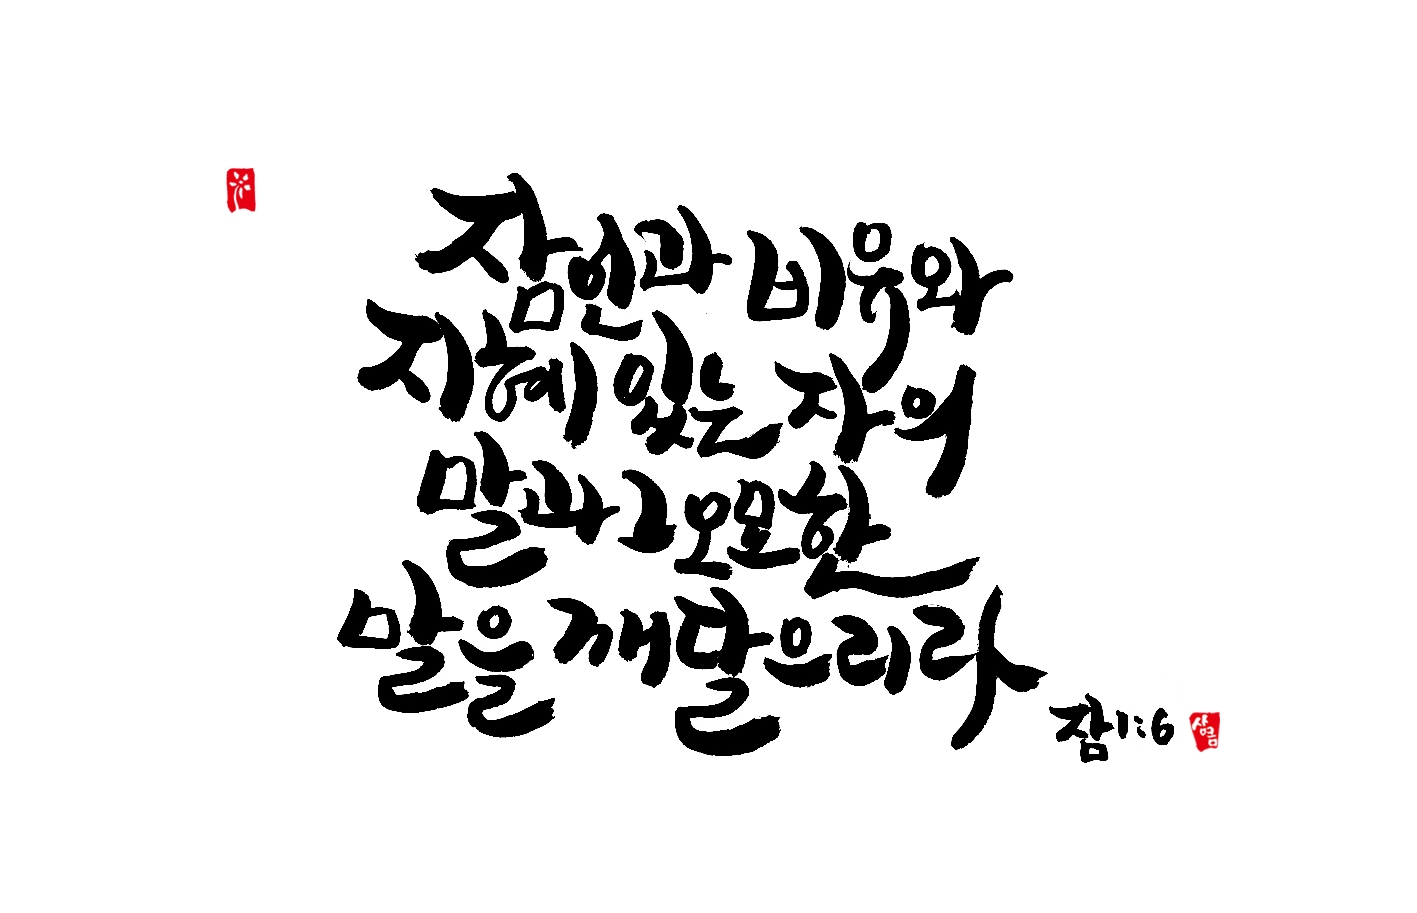 잠언과 비유와
지혜 있는 자의
말과 그 오묘한
말을 깨달으리라
잠1:6
상큼